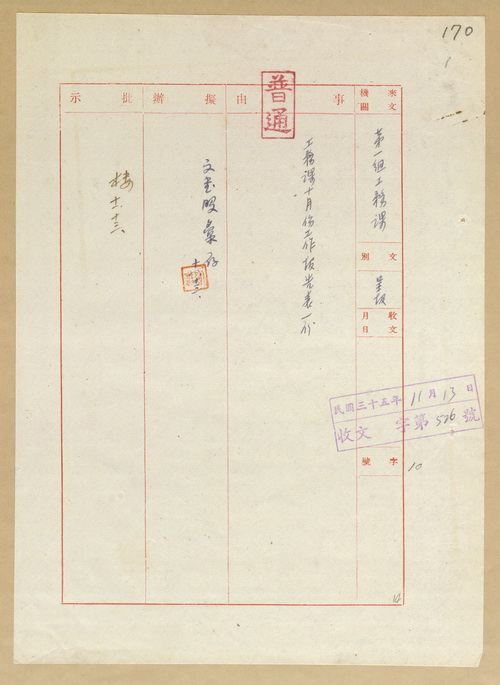 170
普通
來文機關
第一組工務課
文別
呈報
收文月日
民國三十五年11月13日
收文 字第526號
字號
10
事由
工務課十月份工作報告表一份
擬辦
文書股彙存
十一、十三
批示
樓
十一、十三